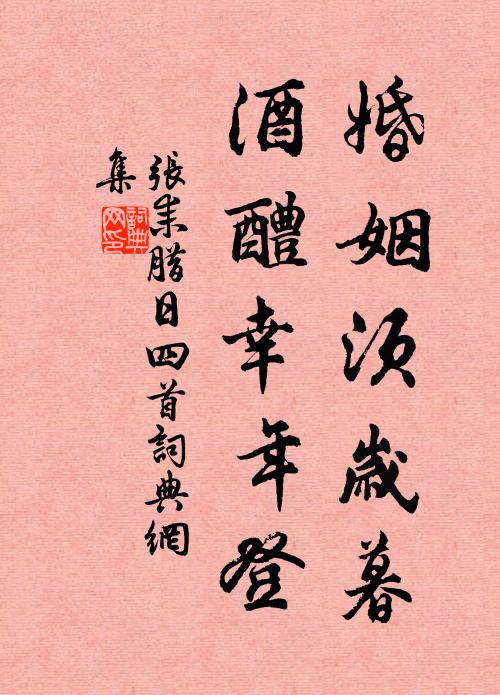 婚姻須歲暮
酒醴幸年登
張耒臘日四首詞典網
集
詞典
网印